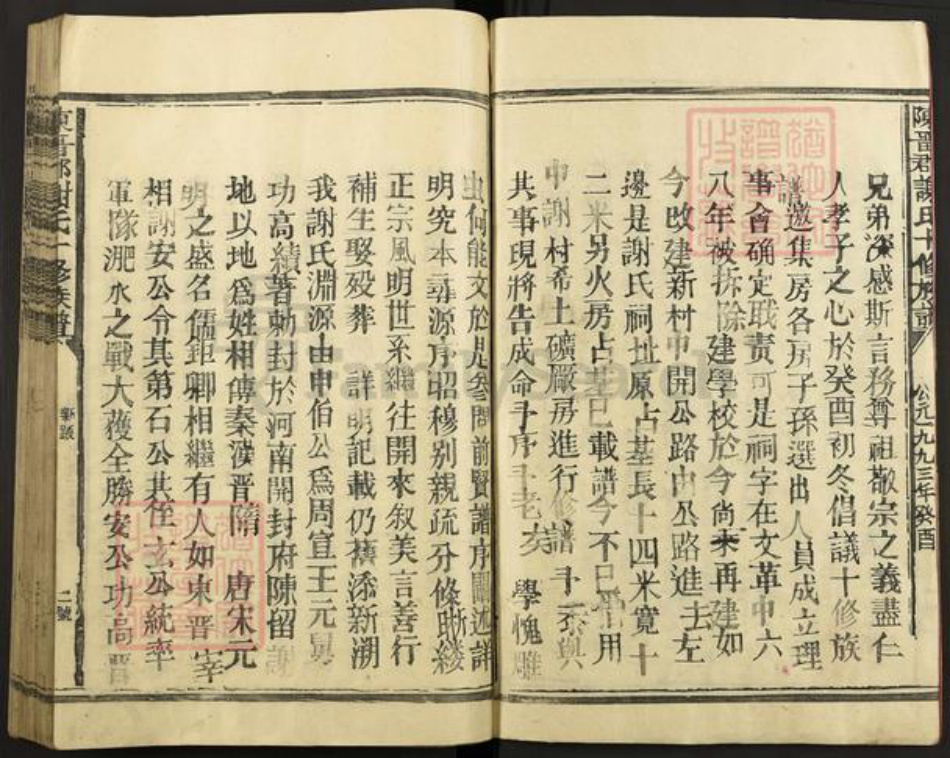 陳晉郡謝氏十修族譜 公元一九九三年癸酉
兄弟深感斯言務尊祖敬宗之義盡仁
人孝子之心於癸酉初冬倡議十修族
譜邀集房各房子孫選出人員成立理
事會确定職责可是祠字在文革中六
八年被拆除建學校於今尚未再建如
今改建新村中開公路由公路進去左
邊是謝氏祠址原占基長十四米寬十
二米另火房占基已載譜今不已用
中謝村希土礦厰房進行修譜于忝與
共事現將告成命于序于老矣 學愧雕
虫何能文於是叅問前賢譜序闡述詳
明究本尋源序昭穆别親疏分條晰縷
正宗風明世系繼往開來叙美言善行
補生娶殁葬 詳明記載仍横添新溯
我謝氏淵源由申伯公爲周宣王元舅
功高績著勅封於河南開封府陳留謝
地以地爲姓相傳秦漢晋隋 唐宋元
明之盛名儒鉅卿相繼有人如東晋宰
相謝安公令其第石公共侄玄公統率
軍隊淝水之戰大獲全勝安公功高晋
陳晋郡謝氏十修族譜 二號